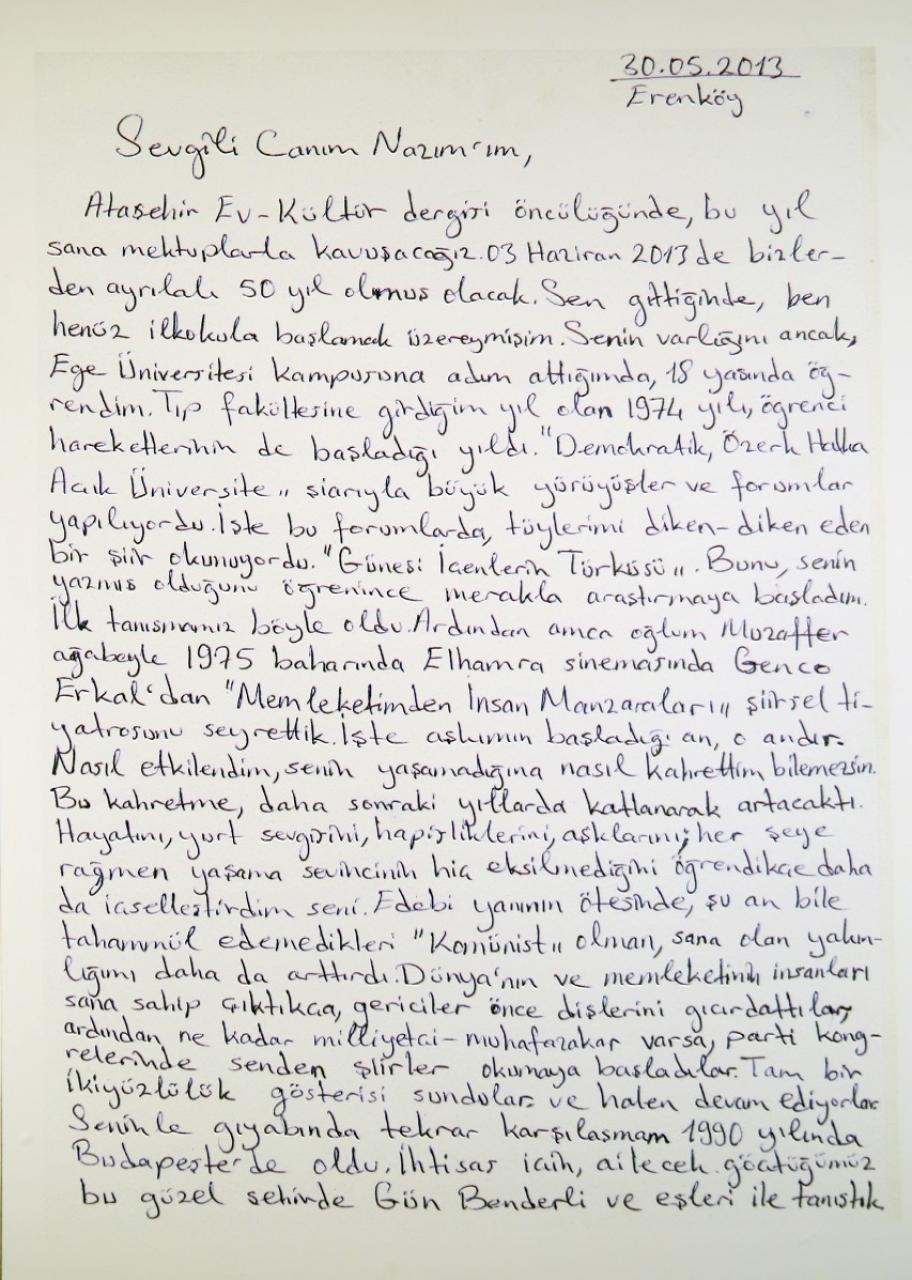 30.05.2013
Erenköy
Sevgili Canım Nazım'ım,
Ataşehir Ev-Kültür dergisi öncülüğünde, bu yıl
sana mektuplarla kavuşacağız. 03 Haziran 2013 de bizler-
den ayrılalı 50 yıl olmuş olacak. Sen gittiğinde, ben
henüz ilkokula başlamak üzereymişim. Senin varlığını ancak,
Ege Üniversitesi kampusuna adım attığımda, 18 yaşında öğ-
rendim. Tıp fakültesine girdiğim yıl olan 1974 yılı, öğrenci
hareketlerinin de başladığı yıldı. "Demokratik, Özerk Halka
Açık Üniversite" şiarıyla büyük yürüyüşler ve forumlar
yapılıyordu. İşte bu forumlarda, tüylerimi diken-diken eden
bir şiir okunuyordu. "Güneşi İçenlerin Türküsü". Bunu, senin
yazmış olduğunu öğrenince merakla araştırmaya başladım.
İlk tanışmamız böyle oldu. Ardından amca oğlum Muzaffer
ağabeyle 1975 baharında Elhamra sinemasında Genco
Erkal'dan "Memleketimden İnsan Manzaraları" şiirsel ti-
yatrosunu seyrettik. İşte aşkımın başladığı an, o andır.
Nasıl etkilendim, senin yaşamadığına nasıl kahrettim bilemezsin.
Bu kahretme, daha sonraki yıllarda katlanarak artacaktı.
Hayatını, yurt sevgisini, hapisliklerini, aşklarını; her şeye
rağmen yaşama sevincinin hiç eksilmediğini öğrendikçe daha
da içselleştirdim seni. Edebi yanının ötesinde, şu an bile
tahammül edemedikleri "Komünist" olman, sana olan yakın-
lığımı daha da arttırdı. Dünya'nın ve memleketinin insanları
sana sahip çıktıkça, gericiler önce dişlerini gıcırdattılar,
ardından ne kadar milliyetçi-muhafazakar varsa, parti kong-
relerinde senden şiirler okumaya başladılar. Tam bir
ikiyüzlülük gösterisi sundular ve halen devam ediyorlar.
Seninle gıyabında tekrar karşılaşmam 1990 yılında
Budapeşte'de oldu. İhtisas için, ailecek göçtüğümüz
bu güzel şehirde Gün Benderli ve eşleri ile tanıştık.